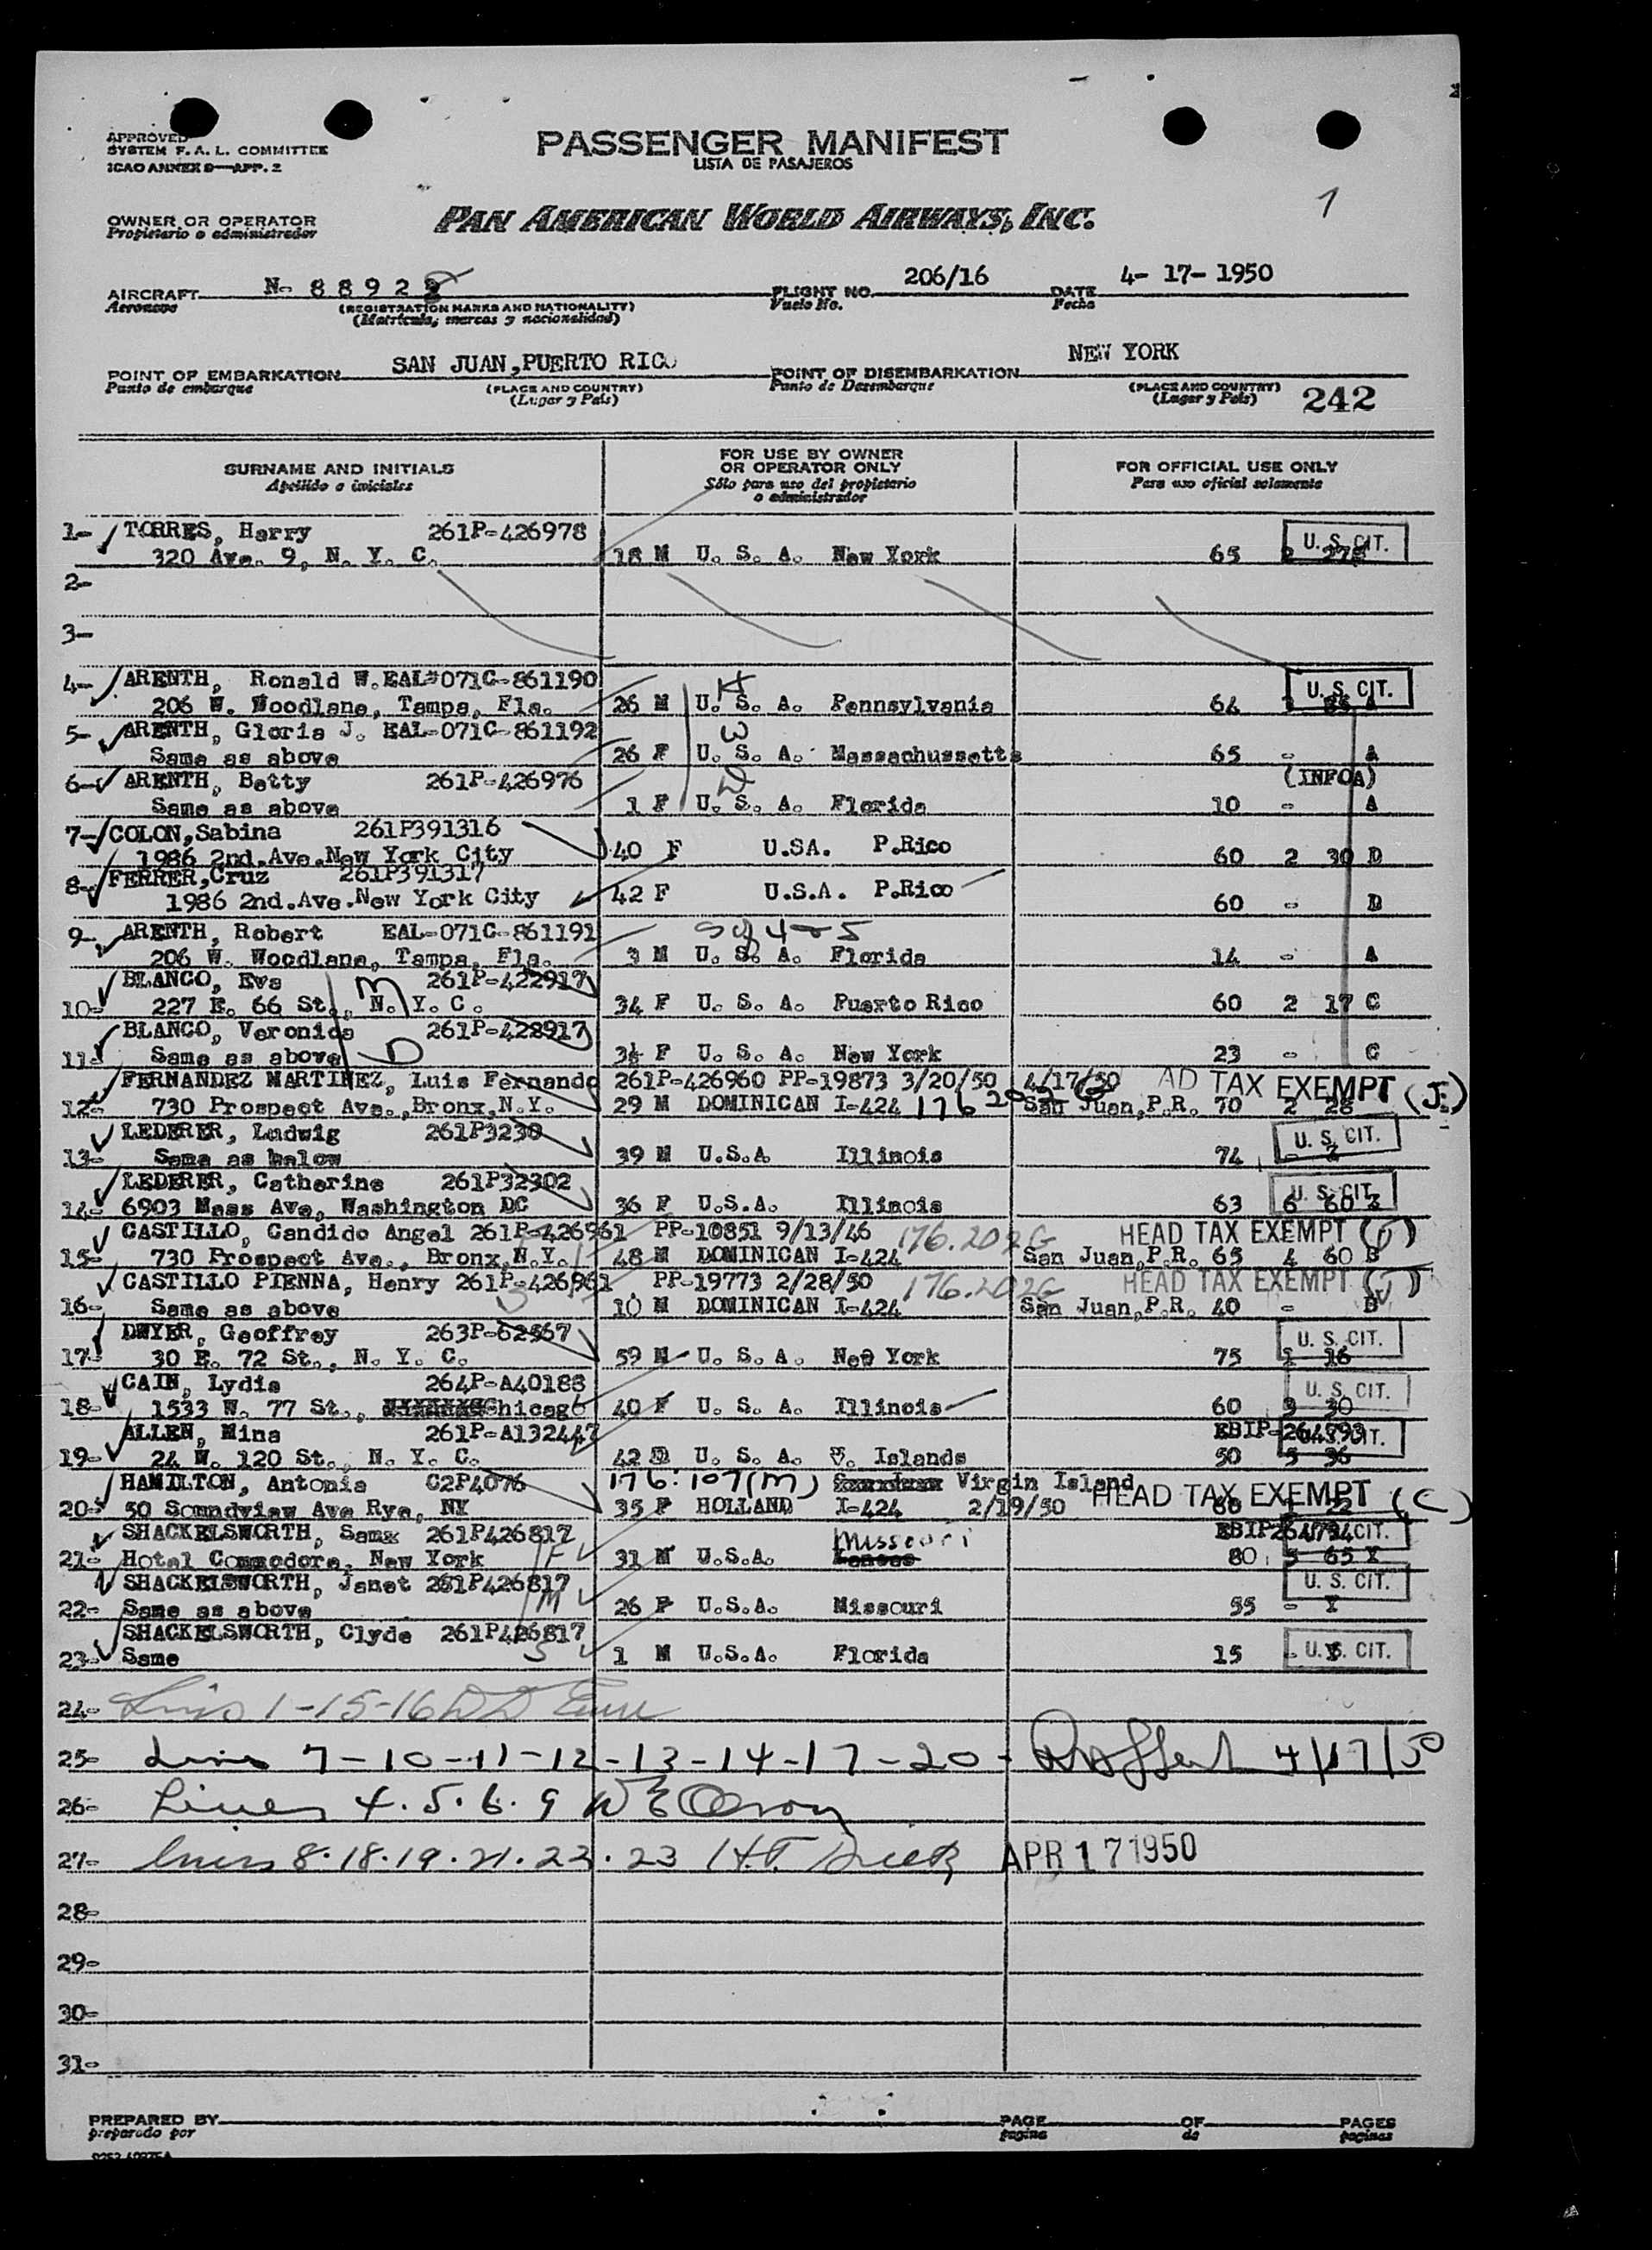 APPROVED
SYSTEM F. A. L. COMMITTEE
ICAO ANNEX 9—APP. 2
PASSENGER MANIFEST
LISTA DE PASAJEROS
1
OWNER OR OPERATOR
Propietario o administrador
PAN AMERICAN WORLD AIRWAYS, INC.
AIRCRAFT N- 88928 FLIGHT NO. 206/16 DATE 4- 17- 1950
Aeronave (REGISTRATION MARKS AND NATIONALITY) Vuelo No. Fecha
(Matrícula, marcas y nacionalidad)
POINT OF EMBARKATION SAN JUAN, PUERTO RICO POINT OF DISEMBARKATION NEW YORK
Punto de embarque (PLACE AND COUNTRY) Punto de Desembarque (PLACE AND COUNTRY)
(Lugar y País) (Lugar y País) 242
SURNAME AND INITIALS FOR USE BY OWNER OR OPERATOR ONLY FOR OFFICIAL USE ONLY
Apellido e iniciales Sólo para uso del propietario o administrador Para uso oficial solamente
1- TORRES, Harry 261P-426978 U. S. CIT.
320 Ave. 9, N. Y. C. 18 M U. S. A. New York 65 2
2-
3-
4- ARENTH, Ronald W. EAL#071C-861190 H U. S. CIT.
206 W. Woodlane, Tampa, Fla. 26 M U. S. A. Pennsylvania 64 A
5- ARENTH, Gloria J. EAL-071C-861192 W
Same as above 26 F U. S. A. Massachussetts 65 - A
6- ARENTH, Betty 261P-426976 D (INFOA)
Same as above 1 F U. S. A. Florida 10 - A
7- COLON,Sabina 261P391316
1986 2nd.Ave.New York City 40 F U.SA. P.Rico 60 2 30 D
8- FERRER,Cruz 261P391317
1986 2nd.Ave.New York City 42 F U.S.A. P.Rico 60 - D
9- ARENTH, Robert EAL-071C-861191 S of 4-5
206 W. Woodlane, Tampa, Fla. 3 M U. S. A. Florida 14 - A
BLANCO, Eva 261P-422917 M
10- 227 E. 66 St., N. Y. C. 34 F U. S. A. Puerto Rico 60 2 17 C
BLANCO, Veronida 261P-422917
11- Same as above D 3½ F U. S. A. New York 23 - C
FERNANDEZ MARTINEZ, Luis Fernando 261P-426960 PP-19873 3/20/50 4/17/50 AD TAX EXEMPT (J)
12- 730 Prospect Ave.,Bronx,N.Y. 29 M DOMINICAN I-424 176.202G San Juan,P.R. 70 2 28
LEDERER, Ludwig 261P3230 U. S. CIT.
13- Same as below 39 M U.S.A Illinois 74
LEDERER, Catherine 261P32302 U. S. CIT.
14- 6903 Mass Ave, Washington DC 36 F U.S.A. Illinois 63 6 60
CASTILLO, Candido Angel 261P-426961 PP-10851 9/13/46 176.202G HEAD TAX EXEMPT (J)
15- 730 Prospect Ave., Bronx,N.Y. 48 M DOMINICAN I-424 San Juan,P.R. 65 4 60 B
CASTILLO PIENNA, Henry 261P-426961 PP-19773 2/28/50 176.202G HEAD TAX EXEMPT (J)
16- Same as above 10 M DOMINICAN I-424 San Juan,P.R. 40 - B
DWYER, Geoffrey 263P-62567 U. S. CIT.
17- 30 E. 72 St., N. Y. C. 59 M U. S. A. New York 75 1 16
CAIN, Lydia 264P-A40183 U. S. CIT.
18- 1533 W. 77 St., Chicago 40 F U. S. A. Illinois 60 3 30
ALLEN, Mina 261P-A132447 EBIP-264793 U. S. CIT.
19- 24 W. 120 St., N. Y. C. 42 U. S. A. V. Islands 50
HAMILTON, Antonia C2P4076 176.107(M) Virgin Island
20- 50 Soundview Ave Rye, NY 35 F HOLLAND I-424 2/19/50 HEAD TAX EXEMPT (C) 22
SHACKELSWORTH, Sam 261P426817 F Missouri EBIP264794 U. S. CIT.
21- Hotel Commodore, New York 31 M U.S.A. Kansas 80 5 65 X
SHACKELSWORTH, Janet 261P426817 M U. S. CIT.
22- Same as above 26 F U.S.A. Missouri 55 - X
SHACKELSWORTH, Clyde 261P426817 S
23- Same 1 M U.S.A. Florida 15 - U. S. CIT.
24- Lines 1-15-16
25- Lines 7-10-11-12-13-14-17-20- 4/17/50
26- Lines 4.5.6.9
27- Lines 8.18.19.21.22.23 H.T. APR 17 1950
28-
29-
30-
31-
PREPARED BY PAGE OF PAGES
preparado por pagina de paginas